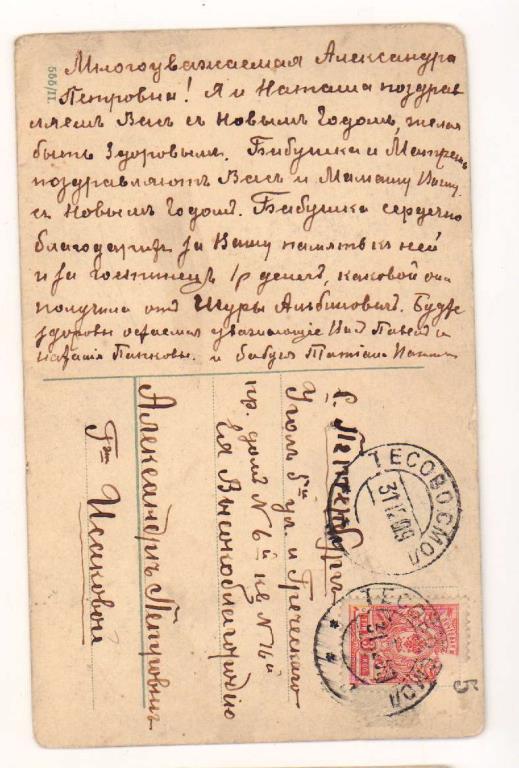 Многоуважаемая Александра
Петровна! Я и Наташа поздрав
ляемъ Васъ съ Новымъ Годомъ, желая
быть здоровыми. Бабушка и Матрена
поздравляютъ Васъ и Мамашу Вашу
съ Новымъ Годомъ. Бабушка сердечно
благодаритъ за Вашу память къ ней
и за гостинецъ 1 р денегъ, каковой она
получила отъ Шуры Альбиновичъ. Будте
здоровы остаемся уважающіе Васъ Павелъ и
Наташа Панковы. и бабуся Татіана
555/11.
С. Петербургъ
Уголъ 5й ул. и Греческаго
пр. домъ № 6й кв № 16й
Ея Высокоблагородію
Александрѣ Петровнѣ
Гжѣ Исаковой
ТЕСОВО СМОЛ
31 12 09
ТЕСОВО СМОЛ
5